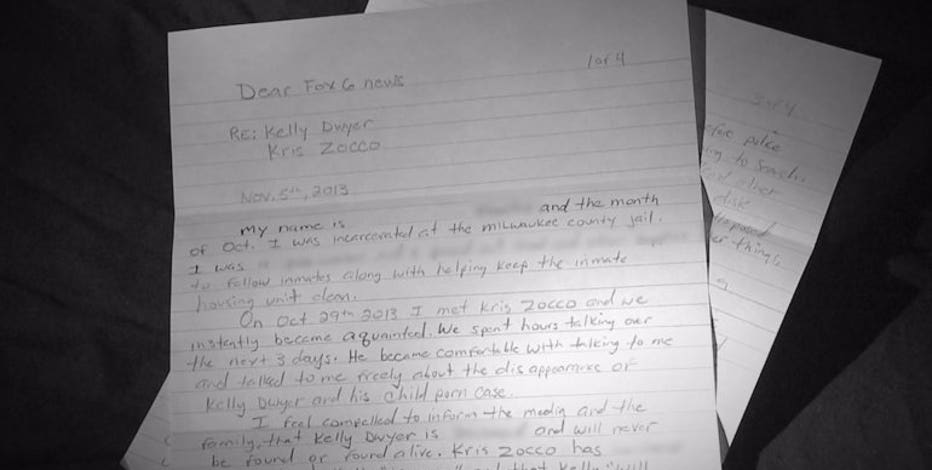 1 of 4
Dear Fox 6 news
RE: Kelly Dwyer
Kris Zocco
Nov. 5th, 2013
my name is and the month
of Oct. I was incarcerated at the milwaukee county jail.
I was
to fellow inmates along with helping keep the inmate
housing unit clean.
On Oct 29th 2013 I met Kris Zocco and we
instantly became aquainted. We spent hours talking over
the next 3 days. He became comfortable with talking to me
and talked to me freely about the disappearance of
Kelly Dwyer and his child porn case.
I feel compelled to inform the media and the
family, that Kelly Dwyer is and will never
be found or found alive. Kris Zocco has
that Kelly "will
of 4
police
to search.
disk
disposed
things